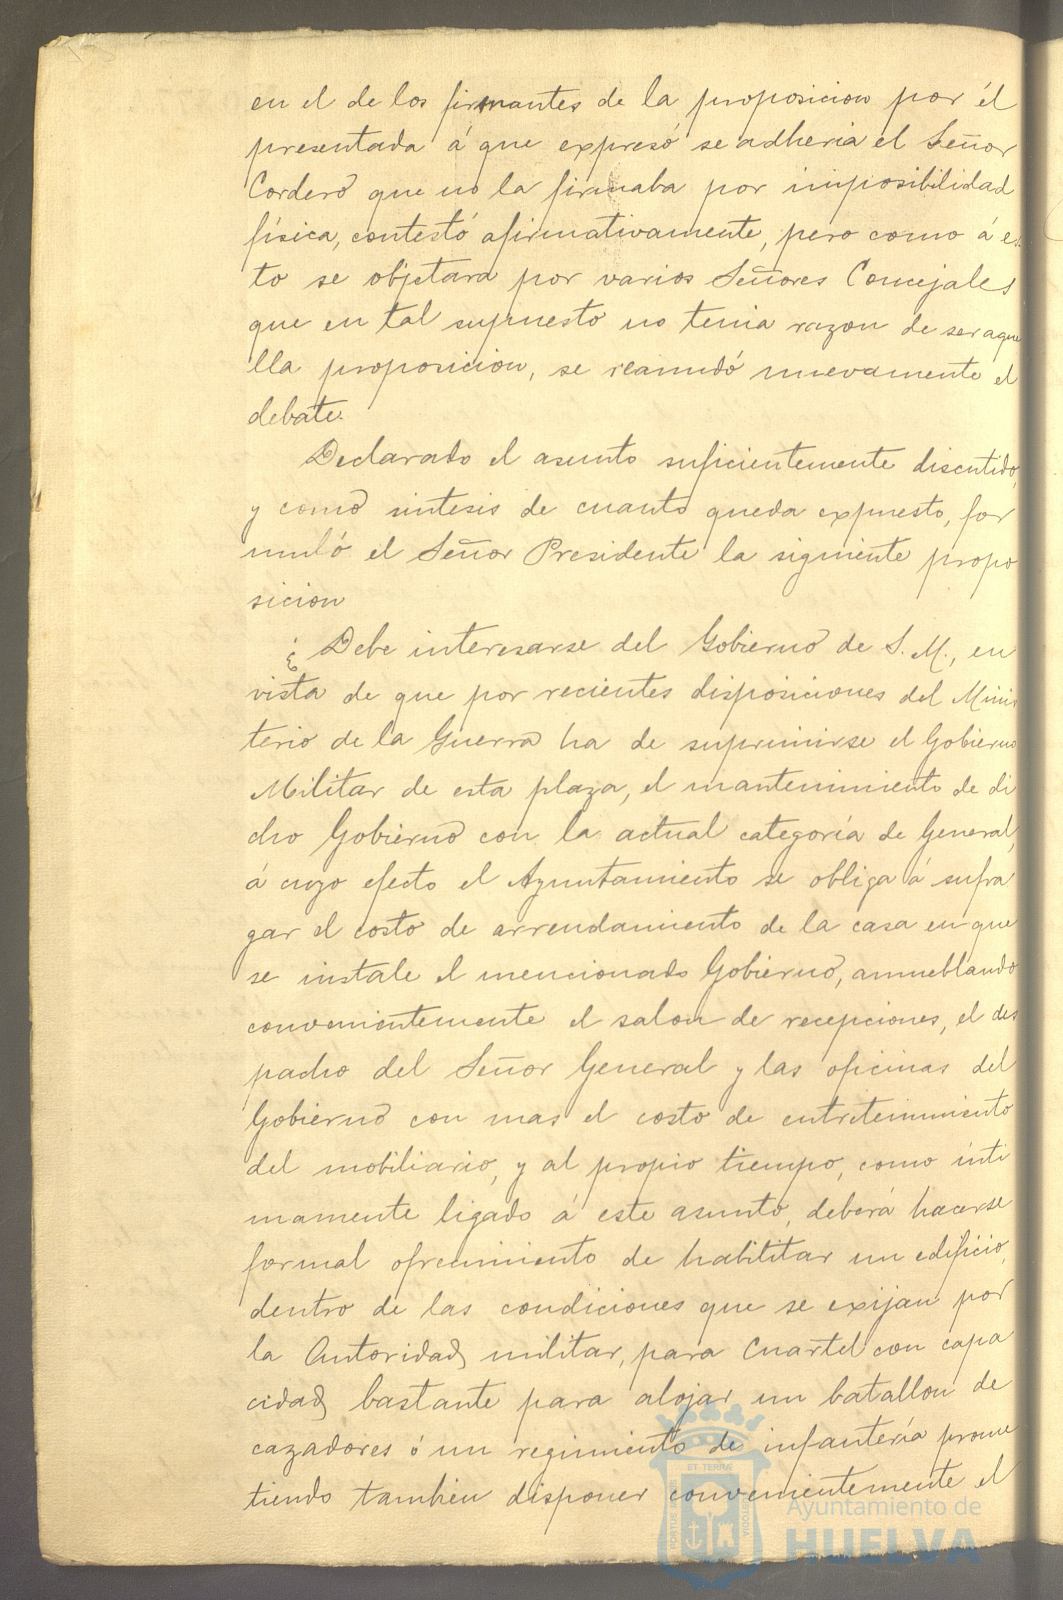 en el de los firmantes de la proposicion por él
presentada á que expresó se adheria el Señor
Cordero que no la firmaba por imposibilidad
física, contestó afirmativamente, pero como á es
to se objetara por varios Señores Concejales
que en tal supuesto no tenia razon de ser aque
lla proposicion, se reanudó nuevamente el
debate.
Declarado el asunto suficientemente discutido,
y como sintesis de cuanto queda expuesto, for
muló el Señor Presidente la siguiente propo
sicion
¿Debe interesarse del Gobierno de S. M., en
vista de que por recientes disposiciones del Minis
terio de la Guerra ha de suprimirse el Gobierno
Militar de esta plaza, el mantenimiento de di
cho Gobierno con la actual categoría de General,
á cuyo efecto el Ayuntamiento se obliga á sufra
gar el costo de arrendamiento de la casa en que
se instale el mencionado Gobierno, amueblando
convenientemente el salon de recepciones, el des
pacho del Señor General y las oficinas del
Gobierno con mas el costo de entretenimiento
del mobiliario, y al propio tiempo, como ínti
mamente ligado á este asunto, deberá hacerse
formal ofrecimiento de habilitar un edificio,
dentro de las condiciones que se exijan por
la Autoridad militar, para Cuartel con capa
cidad bastante para alojar un batallon de
cazadores ó un regimiento de infantería prome
tiendo tambien disponer convenientemente el
Ayuntamiento de
HUELVA
PORTUS
ET TERRÆ
CUSTODIA